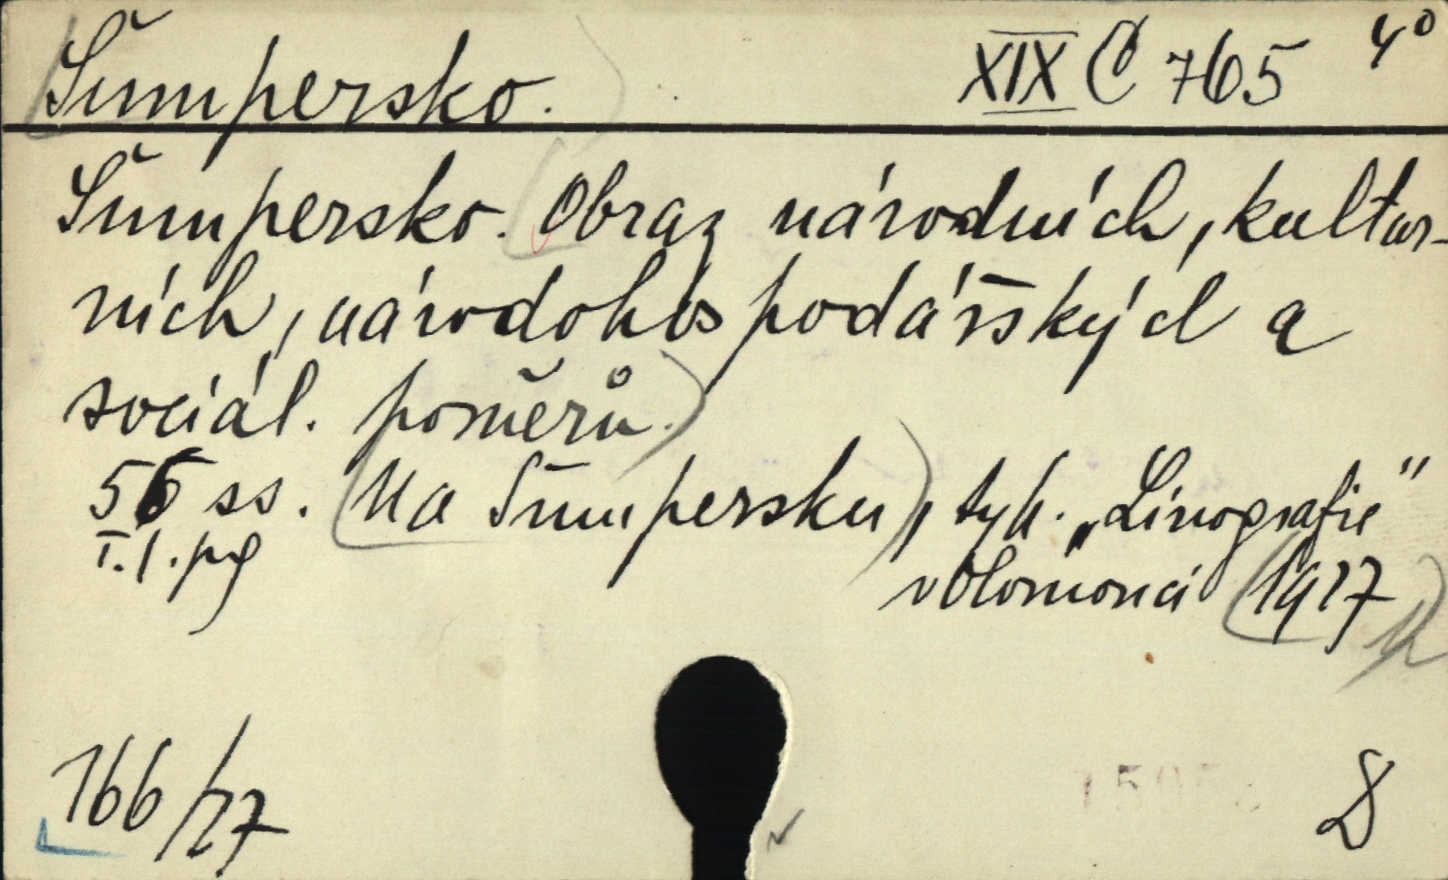 Šumpersko. XIX C 765 4°
Šumpersko. Obraz národních, kultur-
ních, národohospodářských a
sociál. poměrů.
56 ss. Na Šumpersku, tyh. „Linografie"
v Olomouci 1927
166/27
D